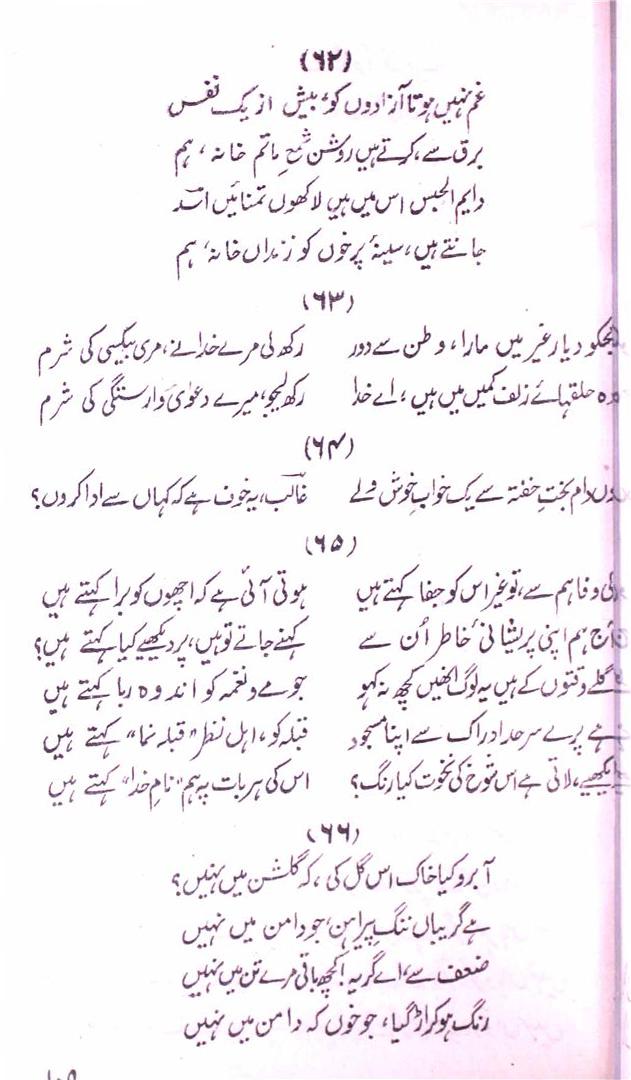 (۶۲)
غم نہیں ہوتا آزادوں کو، بیش از یک نفس
برق سے، کرتے ہیں روشن شمعِ ماتم خانہ، ہم
دایم الحبس اس میں ہیں لاکھوں تمنائیں اسدؔ
جانتے ہیں، سینۂ پرخوں کو زنداں خانہ، ہم
(۶۳)
مجکو دیارِ غیر میں مارا، وطن سے دور رکھ لی مرے خدا نے، مری بیکسی کی شرم
وہ حلقہائے زلف کمیں میں ہیں، اے خدا رکھ لیجو، میرے دعویٰ وارستگی کی شرم
(۶۴)
دام بختِ خفتہ سے یک خوابِ خوش ولے غالبؔ، یہ خوف ہے کہ کہاں سے ادا کروں؟
(۶۵)
وفا ہم سے، تو غیر اس کو جفا کہتے ہیں ہوتی آئی ہے کہ اچھوں کو برا کہتے ہیں
آج ہم اپنی پریشانیٔ خاطر اُن سے کہنے جاتے تو ہیں، پر دیکھیے کیا کہتے ہیں؟
اگلے وقتوں کے ہیں یہ لوگ انھیں کچھ نہ کہو جو مے و نغمہ کو اندوہ ربا کہتے ہیں
ہے پرے سرحدِ ادراک سے اپنا مسجود قبلہ کو، اہلِ نظر "قبلہ نما" کہتے ہیں
دیکھیے، لاتی ہے اس شوخ کی نخوت کیا رنگ؟ اس کی ہر بات پہ ہم "نامِ خدا" کہتے ہیں
(۶۶)
آبرو کیا خاک اس گل کی، کہ گلشن میں نہیں؟
ہے گریباں ننگِ پیراہن، جو دامن میں نہیں
ضعف سے، اے گریہ! کچھ باقی مرے تن میں نہیں
رنگ ہو کر اڑ گیا، جو خوں کہ دامن میں نہیں